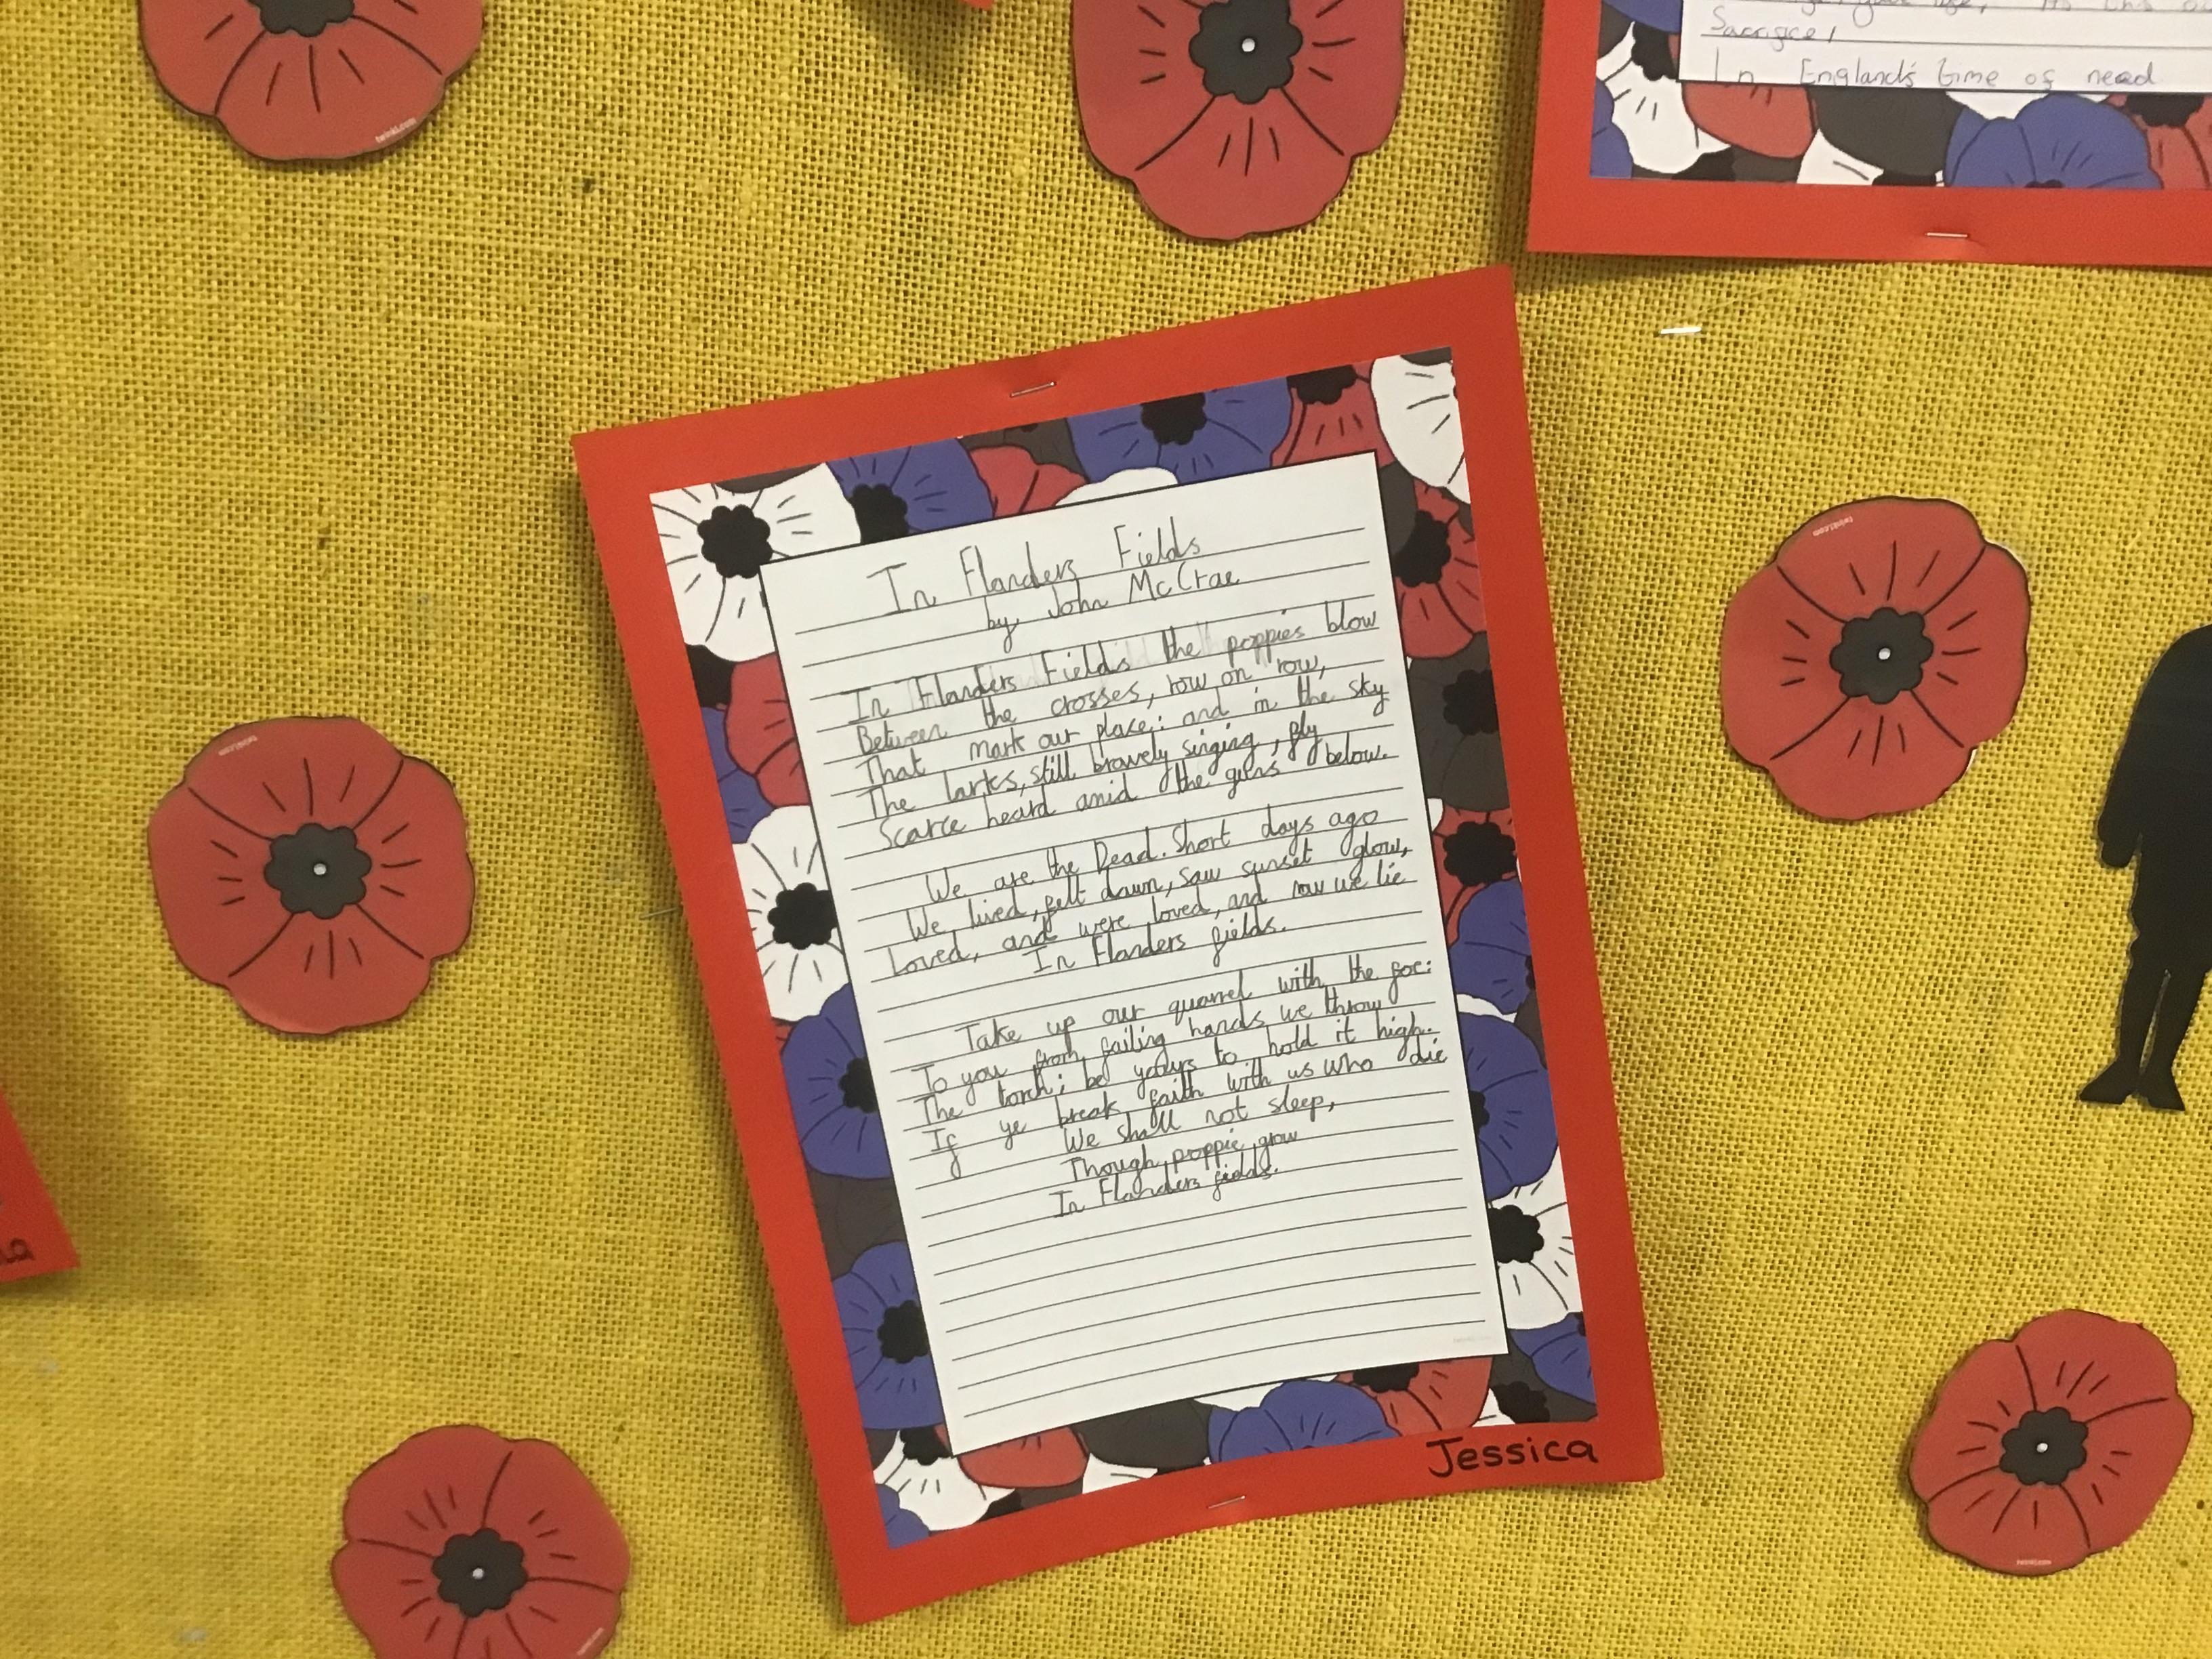 Sacrifice,
In England's time of need
In Flanders Fields
by John McCrae
In Flanders Fields the poppies blow
Between the crosses, row on row,
That mark our place: and in the sky
The larks, still bravely singing, fly
Scarce heard amid the guns below.
We are the Dead. Short days ago
We lived, felt dawn, saw sunset glow,
Loved, and were loved, and now we lie
In Flanders fields.
Take up our quarrel with the foe:
To you from failing hands we throw
The torch; be yours to hold it high.
If ye break faith with us who die
We shall not sleep,
Though poppie grow
In Flanders fields.
Jessica
twinkl.com
twinkl.com
twinkl.com
twinkl.com